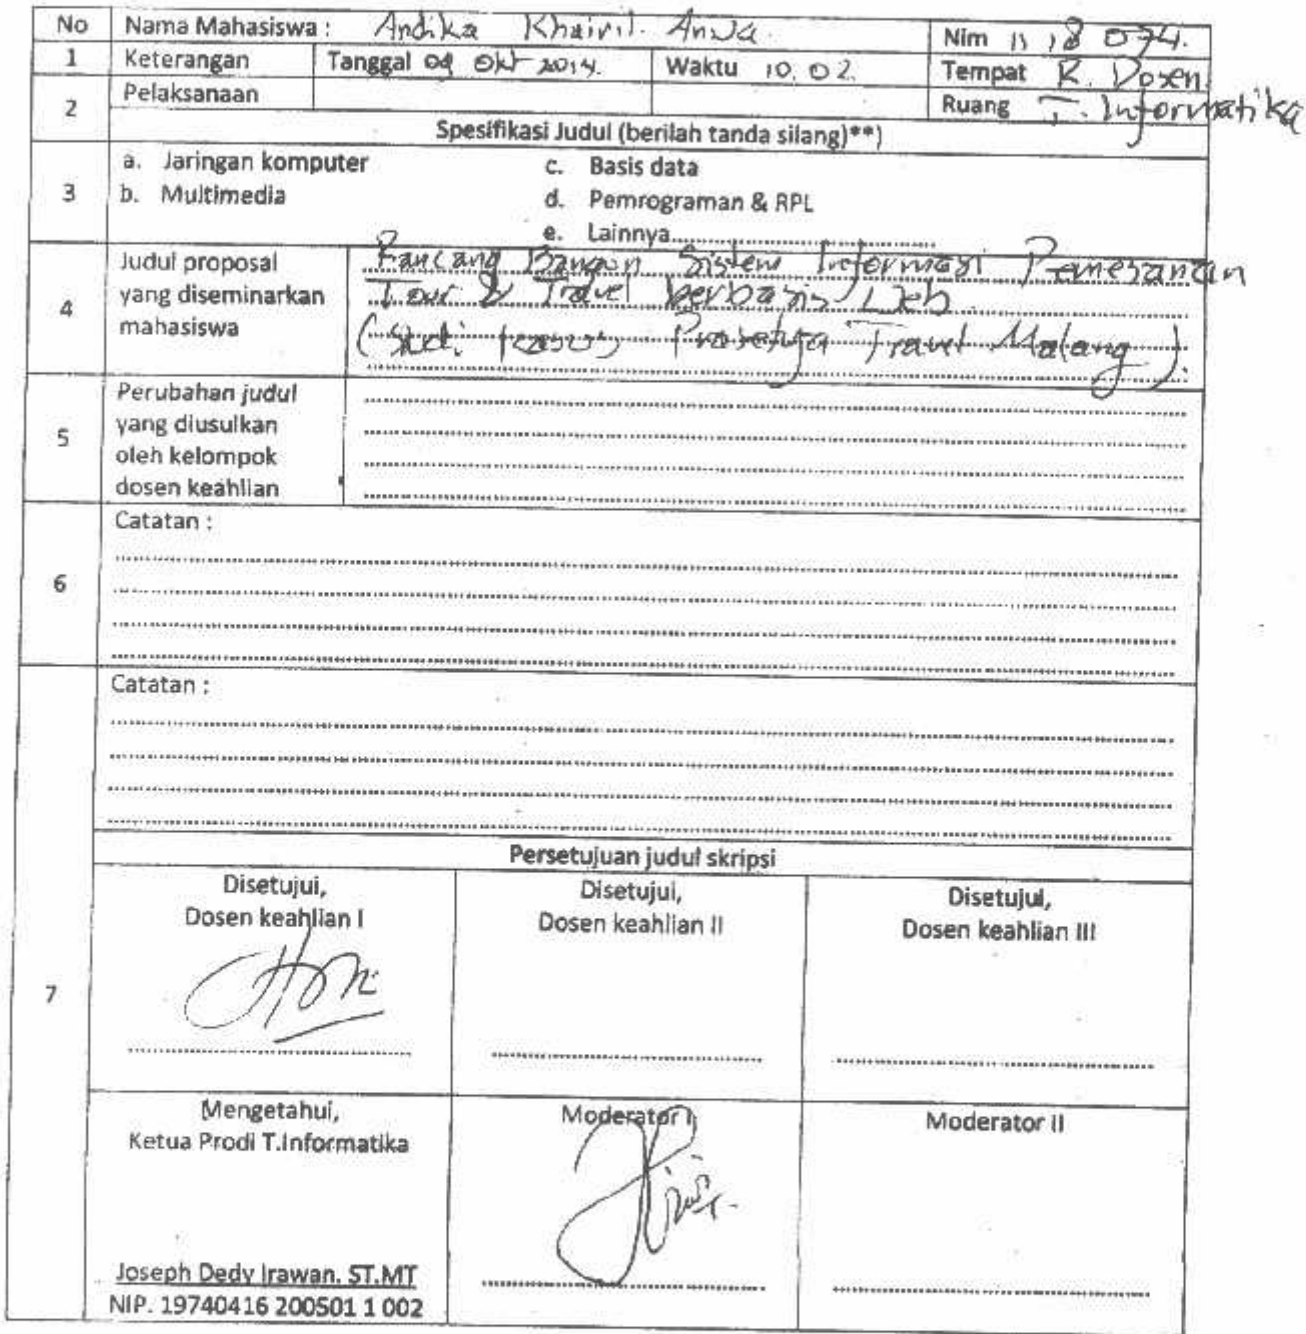 No Nama Mahasiswa : Andika Khairil. Anwa. Nim 11 18 074.
1 Keterangan Tanggal 09 Okt 2014. Waktu 10.02. Tempat R. Dosen
2 Pelaksanaan Ruang T. Informatika
Spesifikasi Judul (berilah tanda silang)**)
3
a. Jaringan komputer
b. Multimedia
c. Basis data
d. Pemrograman & RPL
e. Lainnya
4
Judul proposal
yang diseminarkan
mahasiswa
Rancang Bangun Sistem Informasi Pemesanan
Tour & Travel berbasis Web
(Studi kasus Prasetya Travel Malang).
5
Perubahan judul
yang diusulkan
oleh kelompok
dosen keahlian
6
Catatan :
7
Catatan :
Persetujuan judul skripsi
Disetujui,
Dosen keahlian I
Disetujui,
Dosen keahlian II
Disetujui,
Dosen keahlian III
Mengetahui,
Ketua Prodi T.Informatika
Joseph Dedy Irawan. ST.MT
NIP. 19740416 200501 1 002
Moderator I
Moderator II